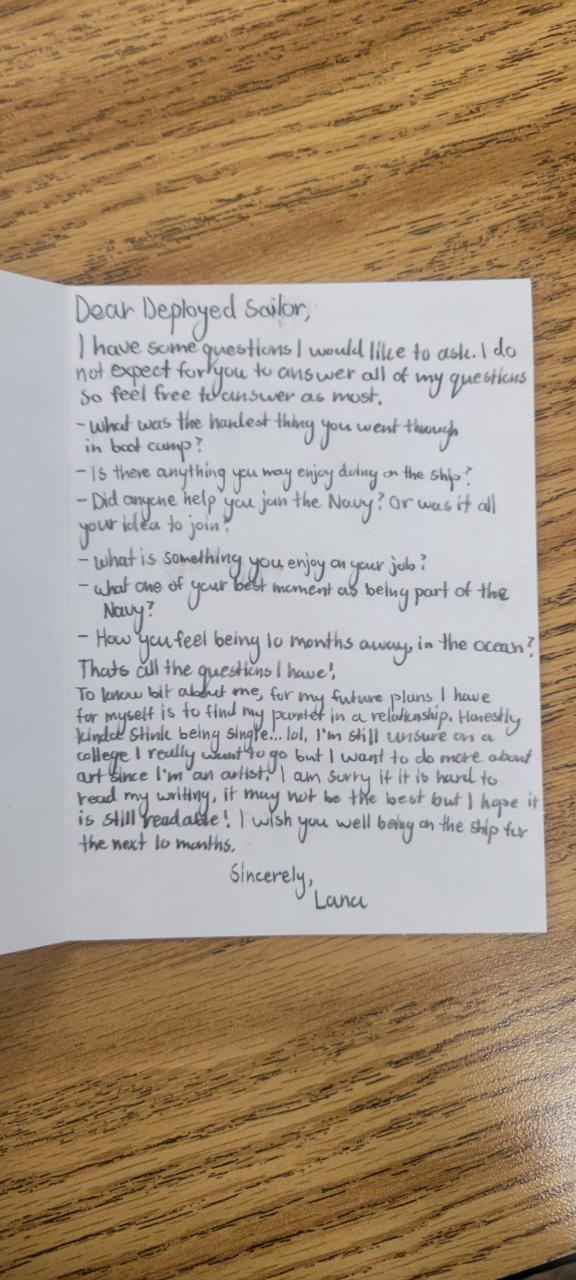 Dear Deployed Sailor,
I have some questions I would like to ask. I do
not expect for you to answer all of my questions
so feel free to answer as most.
- What was the hardest thing you went through
in boot camp?
- Is there anything you may enjoy doing on the ship?
- Did anyone help you join the Navy? Or was it all
your idea to join?
- What is something you enjoy on your job?
- what one of your best moment as being part of the
Navy?
- How you feel being 10 months away, in the ocean?
Thats all the questions I have!
To know bit about me, for my future plans I have
for myself is to find my partner in a relationship. Honestly
kinda stink being single... lol, I'm still unsure on a
college I really want to go but I want to do more about
art since I'm an artist. I am sorry if it is hard to
read my writing, it may not be the best but I hope it
is still readable! I wish you well being on the ship for
the next 10 months.
Sincerely,
Lana